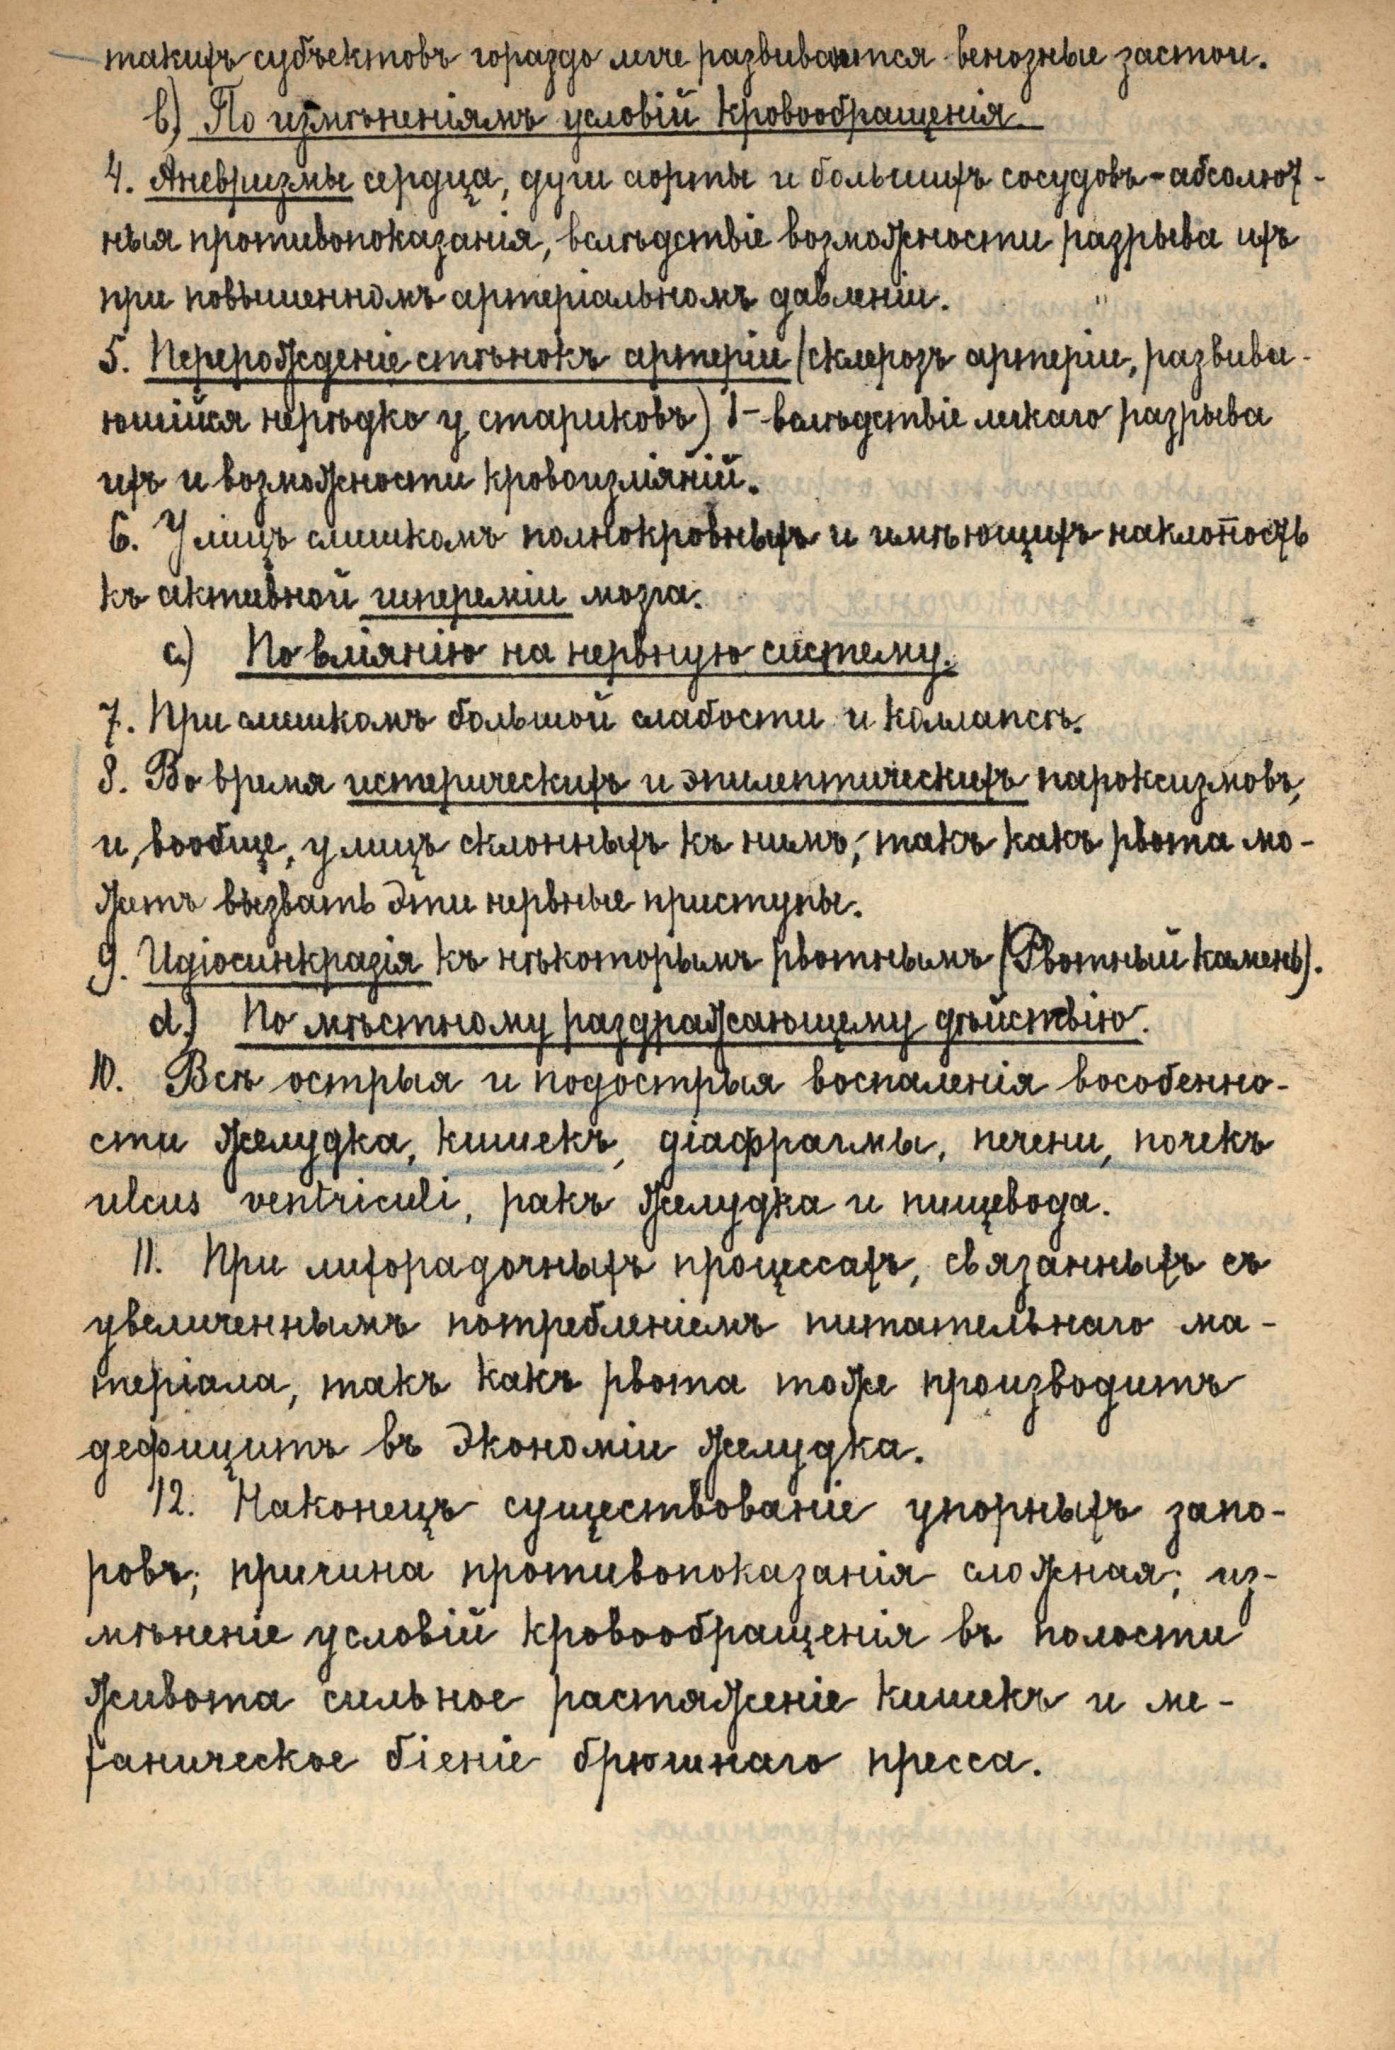 такихъ субъектовъ гораздо легче развиваются венозные застои.
b) По измѣненіямъ условій кровообращенія.
4. Аневризмы сердца, дуги аорты и большихъ сосудовъ - абсолют-
ныя противопоказанія, вслѣдствіе возможности разрыва ихъ
при повышенномъ артеріальномъ давленіи.
5. Перерожденіе стѣнокъ артеріи (склерозъ артеріи, развива-
ющійся нерѣдко у стариковъ) - вслѣдствіе легкаго разрыва
ихъ и возможности кровоизліяній.
6. У лицъ слишкомъ полнокровныхъ и имѣющихъ наклонность
къ активной гипереміи мозга.
c) По вліянію на нервную систему.
7. При слишкомъ большой слабости и коллапсѣ.
8. Во время истерическихъ и эпилептическихъ пароксизмовъ,
и, вообще, у лицъ склонныхъ къ нимъ, такъ какъ рвота мо-
жетъ вызвать эти нервные приступы.
9. Идіосинкразія къ нѣкоторымъ рвотнымъ (Рвотный камень).
d) По мѣстному раздражающему дѣйствію.
10. Всѣ острыя и подострыя воспаленія вособенно-
сти желудка, кишекъ, діафрагмы, печени, почекъ
ulcus ventriculi, ракъ желудка и пищевода.
11. При лихорадочныхъ процессахъ, связанныхъ съ
увеличеннымъ потребленіемъ питательнаго ма-
теріала, такъ какъ рвота тоже производитъ
дефицитъ въ экономіи желудка.
12. Наконецъ существованіе упорныхъ запо-
ровъ; причина противопоказанія сложная; из-
мѣненіе условій кровообращенія въ полости
живота сильное растяженіе кишекъ и ме-
ханическое біеніе брюшнаго пресса.